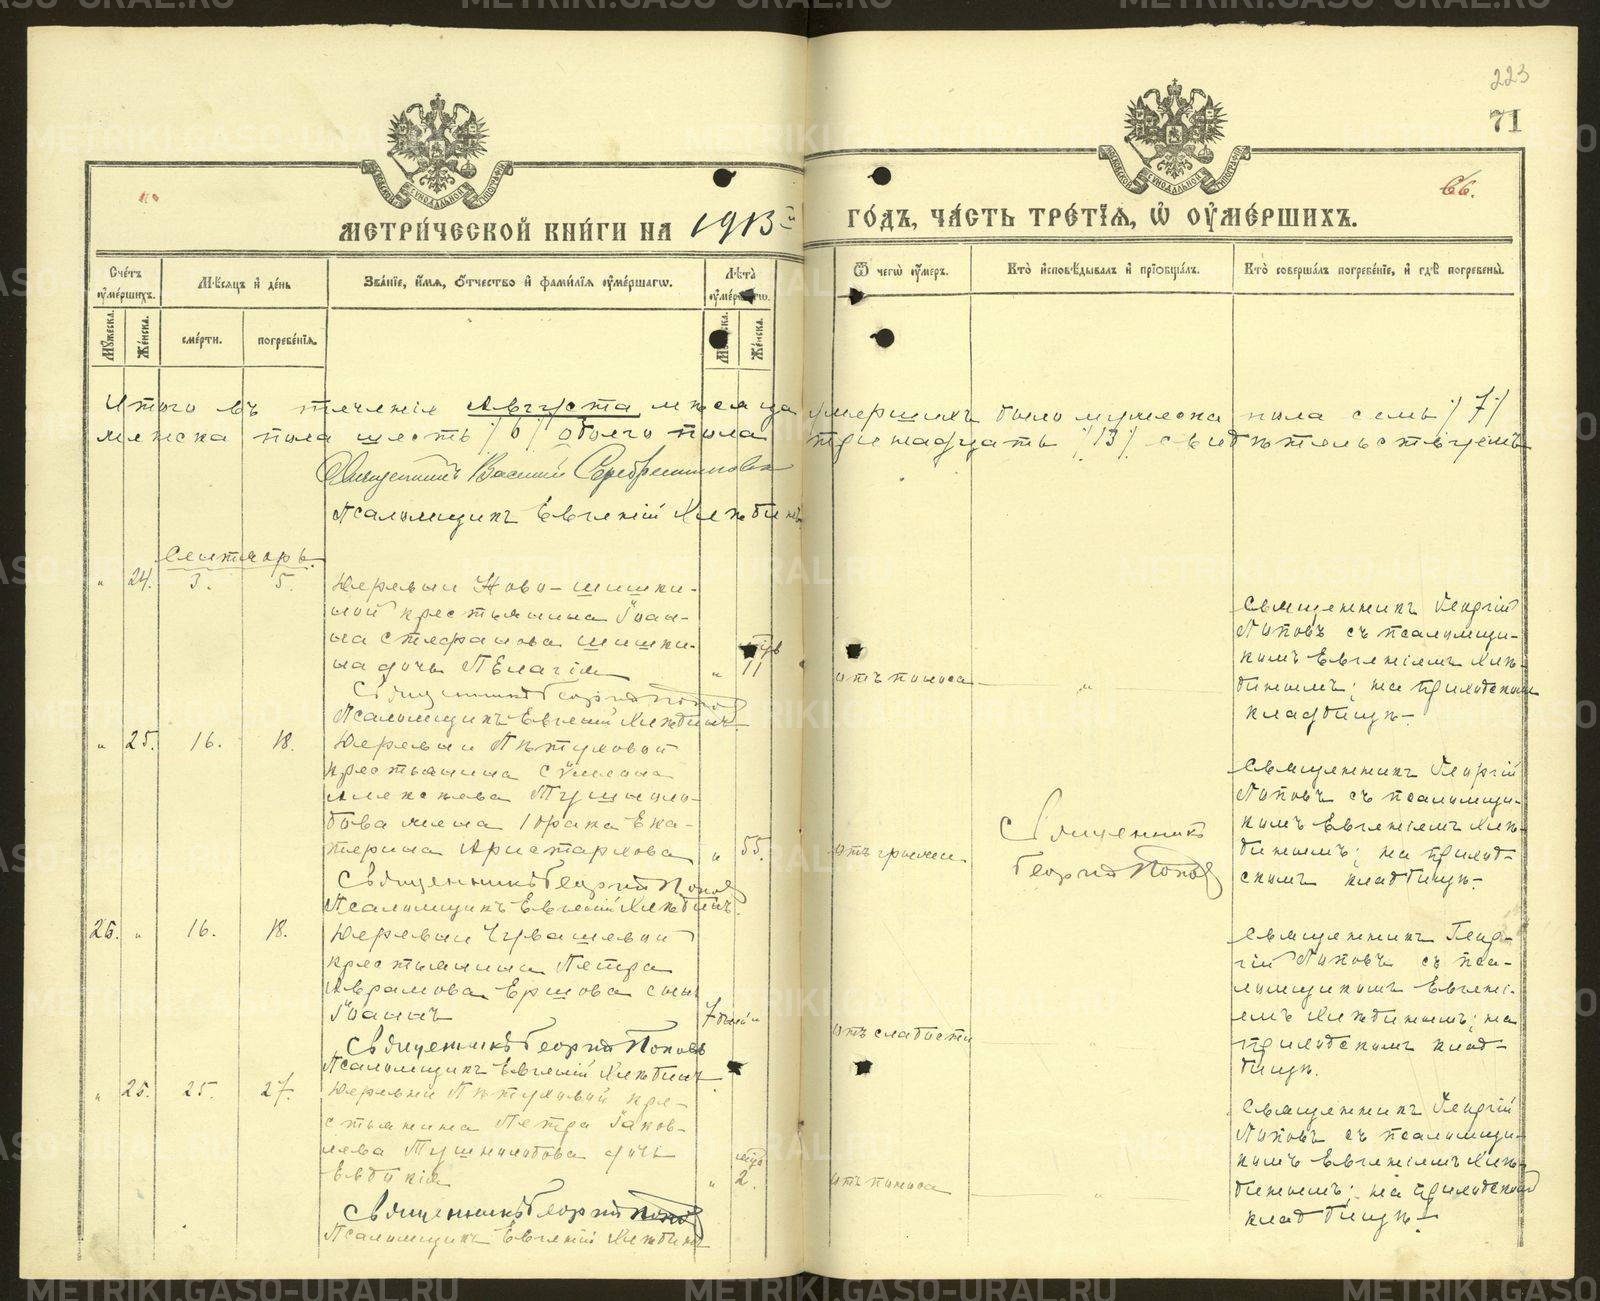 223
71
66.
МЕТРИ́ЧЕСКОЙ КНИ́ГИ НА 1913й ГО́ДЪ, ЧА́СТЬ ТРЕ́ТІЯ, Ѡ҆ ОУ҆МЕ́РШИХЪ.
Сче́тъ оу҆ме́ршихъ.
Мꙋ́жеска.
Же́нска.
Мѣ́сяцъ и҆ де́нь
сме́рти.
погребе́нія.
Зва́ніе, и҆́мя, о҆́тчество и҆ фами́лія оу҆ме́ршагѡ.
Лѣ́та оу҆ме́ршагѡ.
Мꙋ́жеска.
Же́нска.
Ѿ чегѡ̀ оу҆́меръ.
Кто̀ и҆сповѣ́дывалъ и҆ прїѡбща́лъ.
Кто̀ соверша́лъ погребе́ніе, и҆ гдѣ̀ погребены̀.
Итого въ теченіе Августа мѣсяца умершихъ было мужеска пола семь /7/
женска пола шесть /6/ обоего пола тринадцать /13/ свидѣтельствуемъ
Священникъ Василій Серебренниковъ
Псаломщикъ Евгеній Хлѣбинъ
Сентябрь.
" 24. 3. 5.
Деревни Ново-шишки-
ной крестьянина Іоан-
на Стефанова Шишки-
на дочь Пелагія
" 11
отъ поноса
Священникъ Георгій Поповъ
Псаломщикъ Евгеній Хлѣбинъ.
Священникъ Георгій
Поповъ съ псаломщи-
комъ Евгеніемъ Хлѣ-
бинымъ; на приходскомъ
кладбищѣ.
" 25. 16. 18.
Деревни Пѣтуховой
крестьянина Сѵмеона
Алексѣева Тушноло-
бова жена 1 брака Ека-
терина Аристархова
" 55.
отъ грыжи
Священникъ
Георгій Поповъ
Священникъ Георгій Поповъ
Псаломщикъ Евгеній Хлѣбинъ.
Священникъ Георгій
Поповъ съ псаломщи-
комъ Евгеніемъ Хлѣ-
бинымъ; на приход-
скомъ кладбищѣ.
26. " 16. 18.
Деревни Чувашевой
крестьянина Петра
Аврамова Ершова сынъ
Іоаннъ
7 дней "
отъ слабости
Священникъ Георгій Поповъ
Псаломщикъ Евгеній Хлѣбинъ
Священникъ Геор-
гій Поповъ съ пса-
ломщикомъ Евгені-
емъ Хлѣбинымъ; на
приходскомъ клад-
бищѣ.
" 26. 25. 27.
Деревни Пѣтуховой кре-
стьянина Петра Іаков-
лева Тушнолобова дочь
Евдокія
" 2.
отъ поноса
Священникъ Георгій Поповъ
Псаломщикъ Евгеній Хлѣбинъ
Священникъ Георгій
Поповъ съ псаломщи-
комъ Евгеніемъ Хлѣ-
бинымъ; на приходскомъ
кладбищѣ.
METRIKI.GASO-URAL.RU